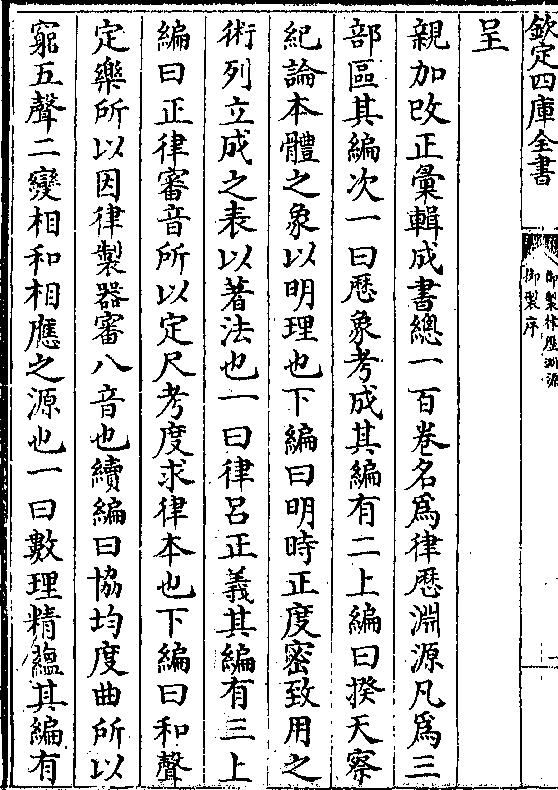 欽定四庫全書
御製律歷淵源
御製序
呈
親加改正彙輯成書總一百卷名爲律歷淵源凡爲三
部區其編次一曰歷象考成其編有二上編曰揆天察
紀論本體之象以明理也下編曰明時正度密致用之
術列立成之表以著法也一曰律呂正義其編有三上
編曰正律審音所以定尺考度求律本也下編曰和聲
定樂所以因律製器審八音也續編曰協均度曲所以
窮五聲二變相和相應之源也一曰數理精蘊其編有